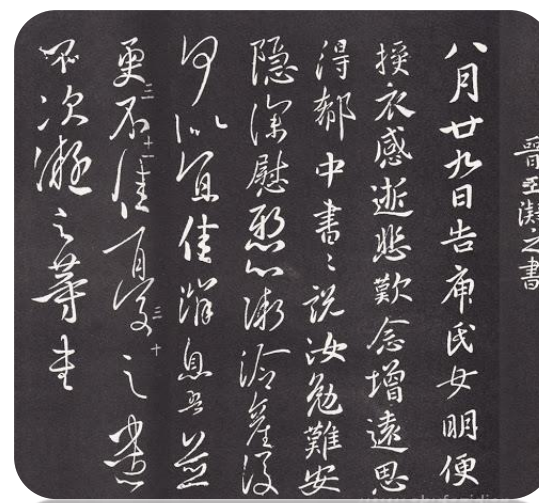 晉王凝之書
八月廿九日告庾氏女明便
授衣感逝悲歎念增遠思
得郗中書〻說汝勉難安
隱深慰懸心漸冷產後
何似宜佳消息吾並
更不佳憂之
不次凝之等書